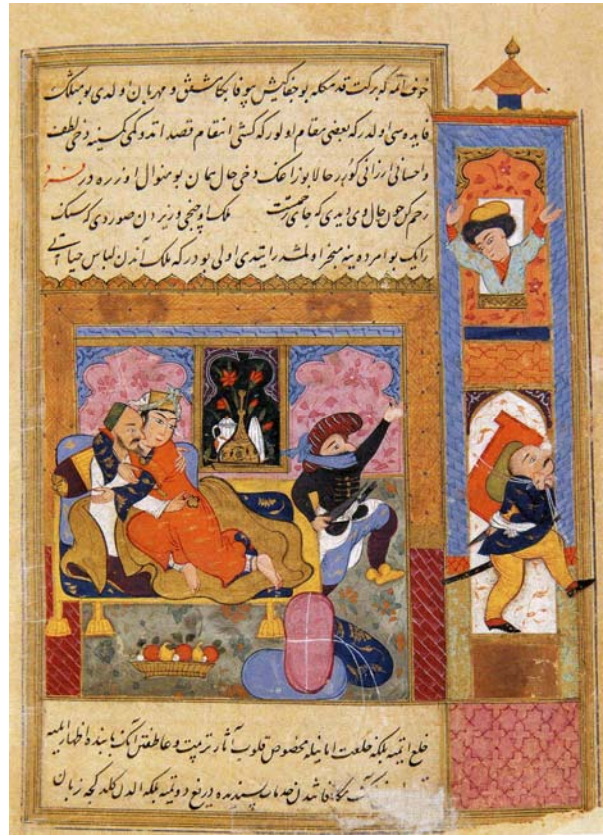 که برکت قدمکله بو جفاکیش بیوفا بکا مشفق و مهربان اولدی بو مثلک
فایده سی اولدر که بعضی مقام اولور که کشی انتقام قصد اتدوکی کمسنه دخی لطف
و احسانی ارزانی کورر حالا بو زاغک دخی حال همان بو منوال اوزره در فرد
رحم کن چون حال وی دیدی که جای رحمتست ملک اوچنجی وزیردن صوردی که سنک
رایک بو امرده نیه منجر اولمشدر ایتدی اولی بودر که ملک آندن لباس حیاتی
خلع ایتمیه بلکه خلعت امانیله مخصوص قلوب آثار تربیت و عاطفتن آنک بابنده اظهار ایلیه
خدمات پسندیده دریغ دوتمیه بلکه الدن کلدکجه زبان